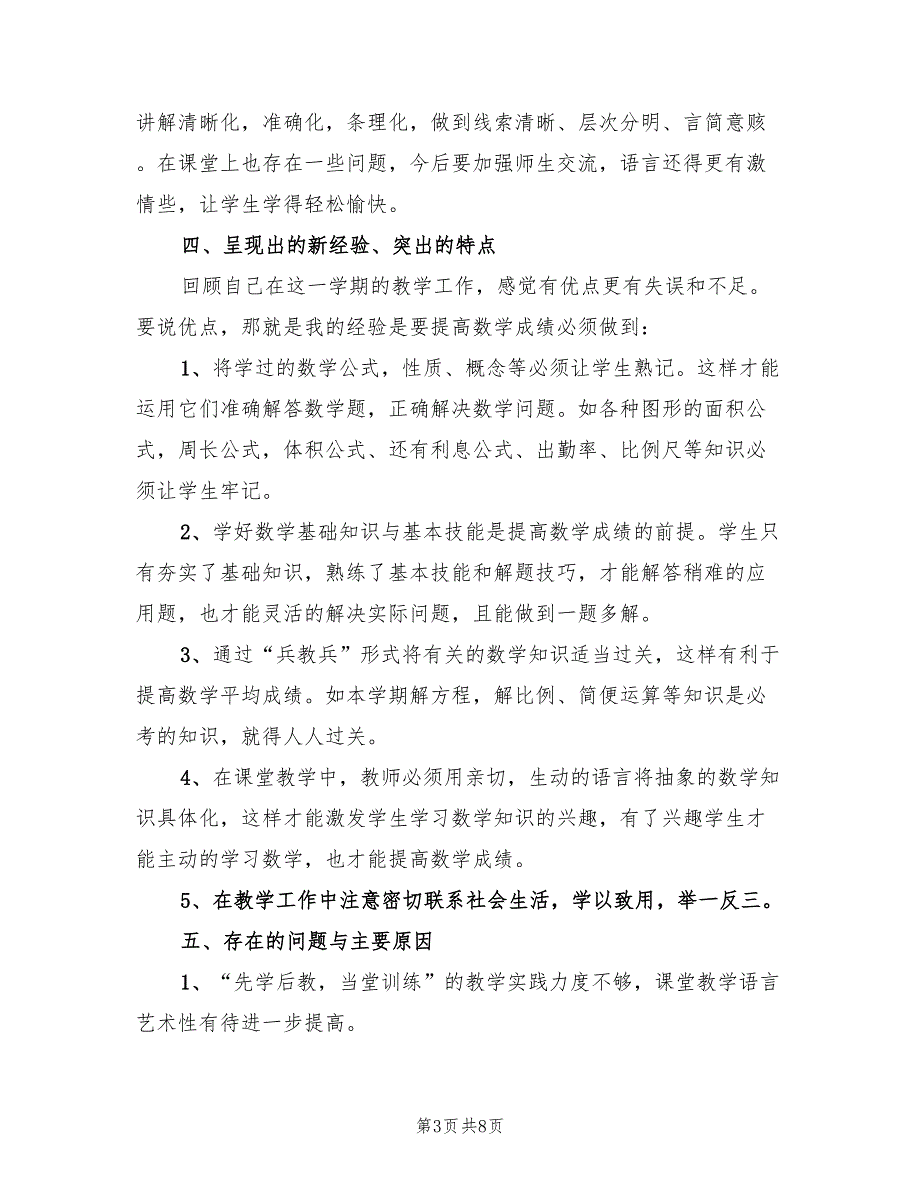 讲解清晰化，准确化，条理化，做到线索清晰、层次分明、言简意赅
。在课堂上也存在一些问题，今后要加强师生交流，语言还得更有激
情些，让学生学得轻松愉快。
四、呈现出的新经验、突出的特点
回顾自己在这一学期的教学工作，感觉有优点更有失误和不足。
要说优点，那就是我的经验是要提高数学成绩必须做到：
1、将学过的数学公式，性质、概念等必须让学生熟记。这样才能
运用它们准确解答数学题，正确解决数学问题。如各种图形的面积公
式，周长公式，体积公式、还有利息公式、出勤率、比例尺等知识必
须让学生牢记。
2、学好数学基础知识与基本技能是提高数学成绩的前提。学生只
有夯实了基础知识，熟练了基本技能和解题技巧，才能解答稍难的应
用题，也才能灵活的解决实际问题，且能做到一题多解。
3、通过“兵教兵”形式将有关的数学知识适当过关，这样有利于
提高数学平均成绩。如本学期解方程，解比例、简便运算等知识是必
考的知识，就得人人过关。
4、在课堂教学中，教师必须用亲切，生动的语言将抽象的数学知
识具体化，这样才能激发学生学习数学知识的兴趣，有了兴趣学生才
能主动的学习数学，也才能提高数学成绩。
5、在教学工作中注意密切联系社会生活，学以致用，举一反三。
五、存在的问题与主要原因
1、“先学后教，当堂训练”的教学实践力度不够，课堂教学语言
艺术性有待进一步提高。
第3页 共8页